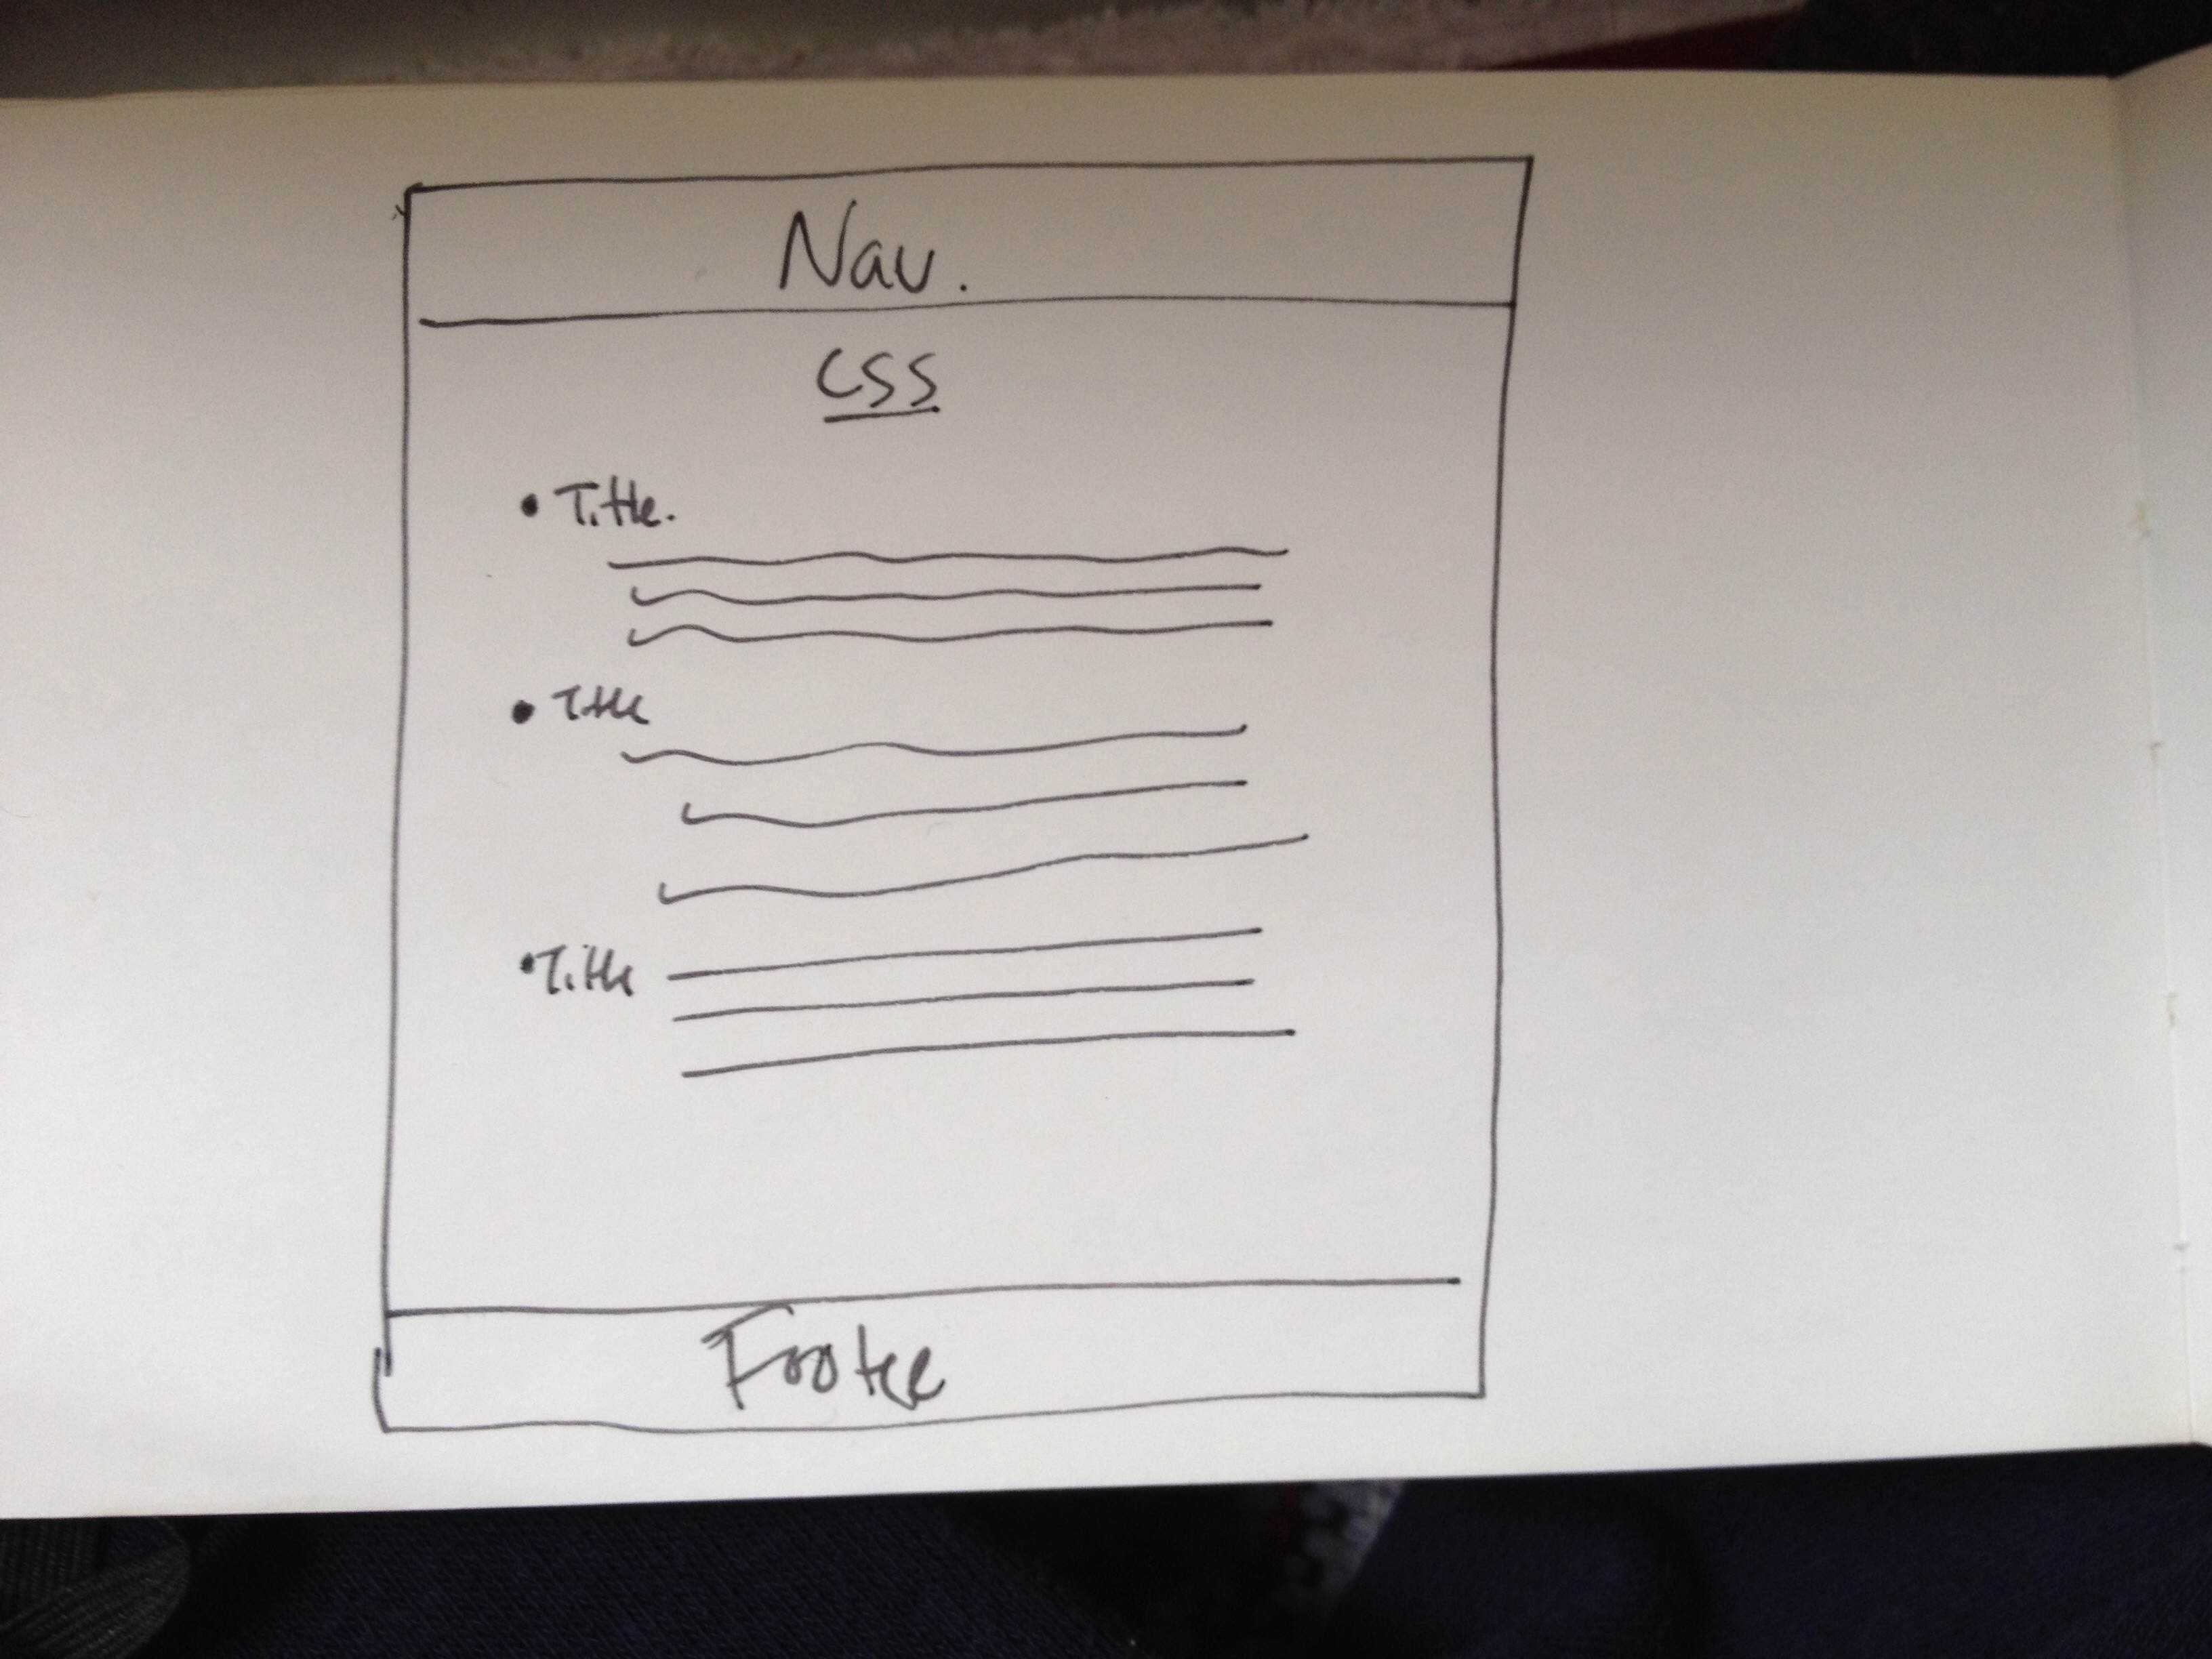 Nav.
CSS
• Title.
• Title
• Title
Footer